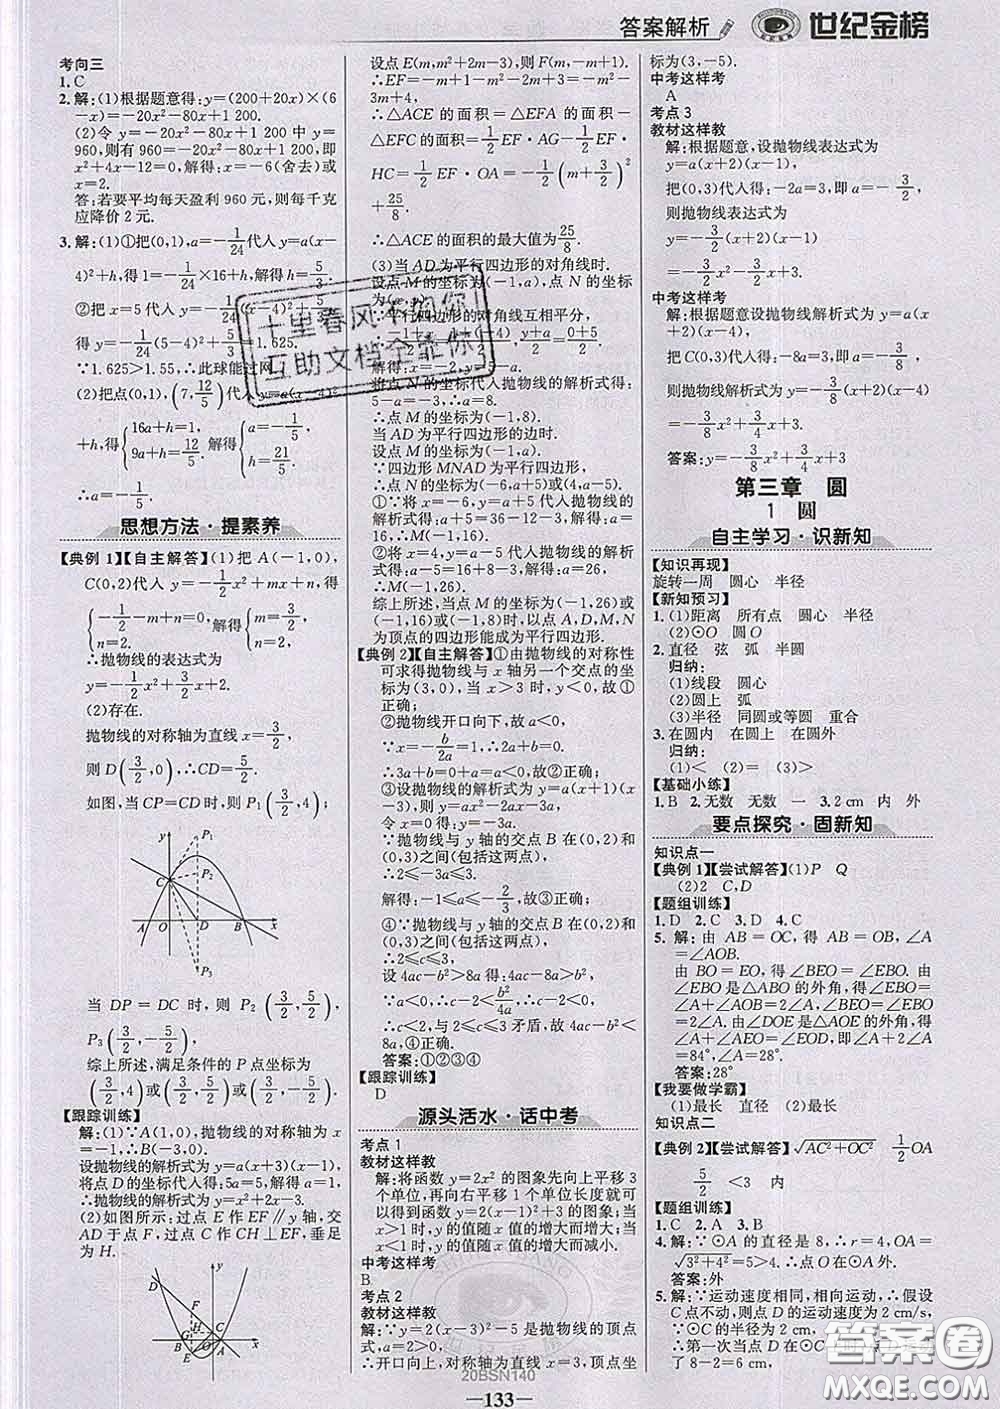 答案解析
世纪金榜
考向三
1. C
2. 解:(1)根据题意得:y=(200+20x)×(6
-x)=-20x²-80x+1 200.
(2)令 y=-20x²-80x+1 200 中 y=
960,则有 960=-20x²-80x+1 200,即
x²+4x-12=0,解得:x=-6(舍去)或
x=2.
答:若要平均每天盈利 960 元,则每千克
应降价 2 元.
3. 解:(1)①把(0,1),a=-1/24代入y=a(x-
4)²+h,得 1=-1/24×16+h,解得 h=5/3.
②把 x=5 代入 y=-1/24(x-4)²+5/3
得 y=-1/24(5-4)²+5/3=1.625,
∵1.625>1.55,∴此球能过网.
(2)把点(0,1),(7,12/5)代入y=a(x-4)²
+h,得{16a+h=1, 9a+h=12/5, 解得{a=-1/5, h=21/5.
∴a=-1/5.
思想方法·提素养
【典例 1】【自主解答】(1)把 A(-1,0),
C(0,2)代入 y=-1/2x²+mx+n,得
{-1/2-m+n=0, n=2. 解得{m=3/2, n=2.
∴抛物线的表达式为
y=-1/2x²+3/2x+2.
(2)存在.
抛物线的对称轴为直线 x=3/2,
则 D(3/2,0),∴CD=5/2.
如图,当 CP=CD 时,则 P₁(3/2,4);
y
P₁
P₂
C
A O D B x
P₃
当 DP=DC 时,则 P₂(3/2,5/2),
P₃(3/2,-5/2).
综上所述,满足条件的 P 点坐标为
(3/2,4)或(3/2,5/2)或(3/2,-5/2).
【跟踪训练】
解:(1)∵A(1,0),抛物线的对称轴为 x
=-1,∴B(-3,0).
设抛物线的解析式为 y=a(x+3)(x-1),
将点 D 的坐标代入得:5a=5,解得 a=1,
∴抛物线的解析式为 y=x²+2x-3.
(2)如图所示:过点 E 作 EF∥y 轴,交
AD 于点 F,过点 C 作 CH⊥EF,垂足
为 H.
设点 E(m,m²+2m-3),则 F(m,-m+1).
∴EF=-m+1-m²-2m+3=-m²-
3m+4.
∴△ACE 的面积=△EFA 的面积-
△EFC的面积=1/2EF·AG-1/2EF·
HC=1/2EF·OA=-1/2(m+3/2)²
+25/8.
∴△ACE 的面积的最大值为25/8.
(3)当 AD 为平行四边形的对角线时.
设点 M 的坐标为(-1,a),点 N 的坐
∵平行四边形的对角线互相平分,
解得:x=-2,y=5-a.
将点 N 的坐标代入抛物线的解析式得:
5-a=-3,∴a=8.
∴点 M 的坐标为(-1,8).
当 AD 为平行四边形的边时.
设点 M 的坐标为(-1,a).
∵四边形 MNAD 为平行四边形,
∴点 N 的坐标为(-6,a+5)或(4,a-5).
∵将 x=-6,y=a+5 代入抛物线的解
析式得:a+5=36-12-3,解得:a=16,
∴M(-1,16).
②将 x=4,y=a-5 代入抛物线的解析
式得:a-5=16+8-3,解得:a=26,
∴M(-1,26).
综上所述,当点 M 的坐标为(-1,26)或
(-1,16)或(-1,8)时,以点 A,D,M,N
为顶点的四边形能成为平行四边形.
【典例 2】【自主解答】①由抛物线的对称性
可求得抛物线与 x 轴另一个交点的坐
标为(3,0),当 x>3 时,y<0,故①
正确;
②抛物线开口向下,故 a<0,
∵x=-b/2a=1,∴2a+b=0.
∴3a+b=0+a=a<0,故②正确;
③设抛物线的解析式为 y=a(x+1)(x-
3),则 y=ax²-2ax-3a,
令 x=0 得:y=-3a.
∵抛物线与 y 轴的交点 B 在(0,2)和
(0,3)之间(包括这两点),
∴2≤-3a≤3.
解得:-1≤a≤-2/3,故③正确;
④∵抛物线与y轴的交点B在(0,2)和
(0,3)之间(包括这两点),
∴2≤c≤3,
设 4ac-b²>8a得4ac-8a>b²,
∵a<0,∴c-2<b²/4a
∴c-2<0
∴c<2,与 2≤c≤3 矛盾,故 4ac-b²<
8a,④正确.
答案:①②③④
【跟踪训练】
D
源头活水·话中考
考点 1
教材这样教
解:将函数 y=2x² 的图象先向上平移 3
个单位,再向右平移 1 个单位长度就可
以得到函数 y=2(x-1)²+3 的图象;当
x>1 时,y 的值随 x 值的增大而增大;当
x<1 时,y 的值随 x 值的增大而减小.
中考这样考
B
考点 2
教材这样教
解:∵y=2(x-3)²-5 是抛物线的顶点
式,a=2>0,
∴开口向上,对称轴为直线 x=3,顶点坐
标为(3,-5).
中考这样考
A
考点 3
教材这样教
解:根据题意,设抛物线表达式为
y=a(x+2)(x-1)
把(0,3)代入得:-2a=3,即 a=-3/2,
则抛物线表达式为
y=-3/2(x+2)(x-1)
=-3/2x²-3/2x+3.
中考这样考
解:根据题意设抛物线解析式为 y=a(x
+2)(x-4),
把 C(0,3)代入得:-8a=3,即 a=-3/8,
则抛物线解析式为 y=-3/8(x+2)(x-4)
=-3/8x²+3/4x+3.
答案:y=-3/8x²+3/4x+3
第三章 圆
1 圆
自主学习·识新知
【知识再现】
旋转一周 圆心 半径
【新知预习】
1. (1)距离 所有点 圆心 半径
(2)⊙O 圆O
2. 直径 弦 弧 半圆
归纳:
(1)线段 圆心
(2)圆上 弧
(3)半径 同圆或等圆 重合
3. 在圆内 在圆上 在圆外
归纳:
(1)< (2)= (3)>
【基础小练】
1. B 2. 无数 无数 一 3. 2 cm 内 外
要点探究·固新知
知识点一
【典例 1】【尝试解答】(1)P Q
(2)2 C,D
【题组训练】
1. D 2. C 3. D 4. C
5. 解:由 AB=OC,得 AB=OB,∠A
=∠AOB.
由 BO=EO,得∠BEO=∠EBO.
由∠EBO是△ABO的外角,得∠EBO=
∠A+∠AOB=2∠A,∠BEO=∠EBO
=2∠A.由∠DOE是△AOE的外角,得
∠A+∠AEO=∠EOD,即∠A+2∠A=
84°,∠A=28°.
答案:28°
【我要做学霸】
(1)最长 直径 (2)最长
知识点二
【典例 2】【尝试解答】√(AC²+OC²) 1/2OA
5/2 <3 内
【题组训练】
1. C 2. A 3. B
4. 解:∵⊙A的直径是 8,∴r=4,OA=
√(3²+4²)=5>4.∴点 O 在⊙A 外.
答案:外
5. 解:∵运动速度相同,相向运动,∴假设
C 点不动,则点 D 的运动速度为 2 cm/s.
∵⊙C 的半径为 2 cm,
∴第一次当点 D 在⊙C
了 8-2=6(cm),
十里春风不如你
互助文档全靠你
20BSN140
—133—
答案圈
MXQE.COM